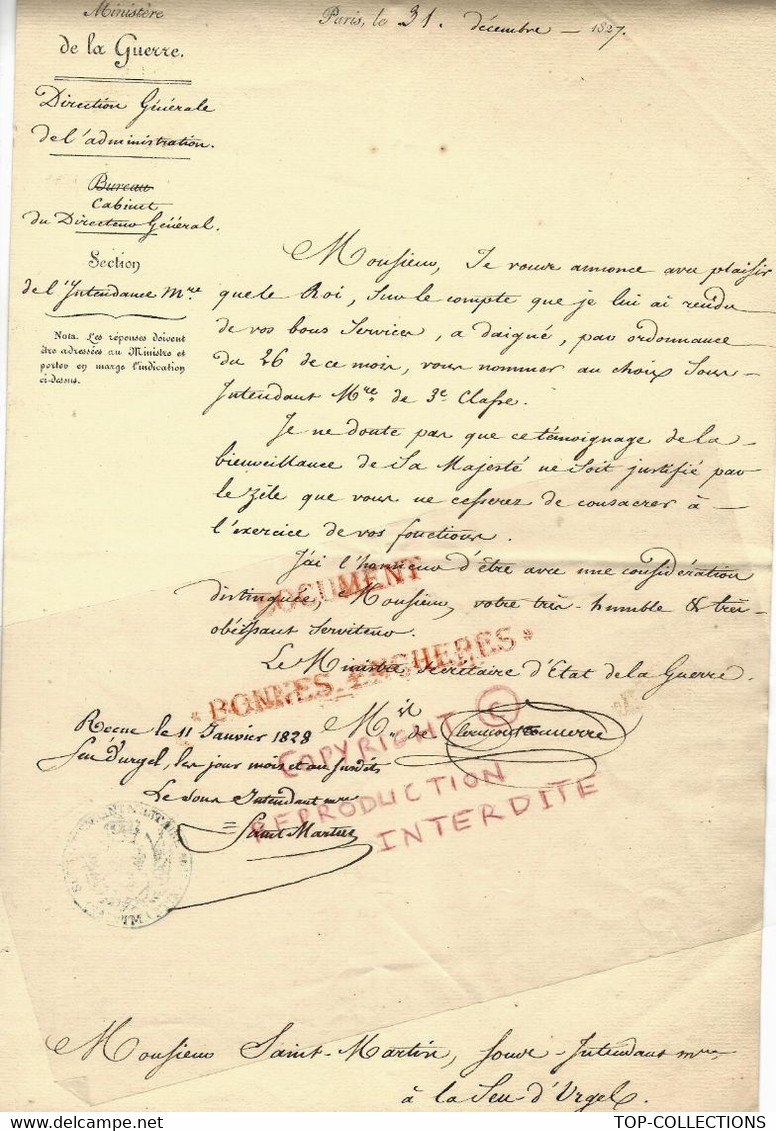 Ministère
de la Guerre.
Paris, le 31. décembre 1827.
Direction Générale
de l'administration.
Bureau
Cabinet
du Directeur Général.
Section
de l'Intendance Mre.
Nota. Les réponses doivent
être adressées au Ministre et
porter en marge l'indication
ci-dessus.
Monsieur, Je vous annonce avec plaisir
que le Roi, sur le compte que je lui ai rendu
de vos bons Services, a daigné, par ordonnance
du 26 de ce mois, vous nommer au choix Sous-
Intendant Mre. de 3e. Classe.
Je ne doute pas que ce témoignage de la
bienveillance de Sa Majesté ne soit justifié par
le zèle que vous ne cesserez de consacrer à
l'exercice de vos fonctions.
J'ai l'honneur d'être avec une considération
distinguée, Monsieur, votre très-humble & très-
obéissant Serviteur.
Le Ministre Secrétaire d'Etat de la Guerre.
Mis de Clermont Tonnerre
DOCUMENT
"BONNES ENCHERES"
COPYRIGHT ©
REPRODUCTION
INTERDITE
Reçue le 11 Janvier 1828
Seu d'urgel, les jour mois et an susdits
Le Sous Intendant mre
Saint Martin
Monsieur Saint-Martin, Sous-Intendant mre
à la Seu-d'Urgel.
TOP-COLLECTIONS